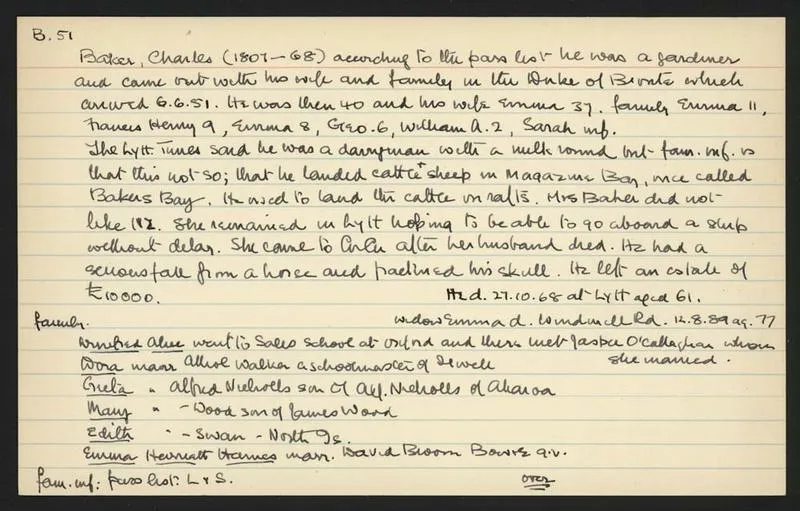 B.51
Baker, Charles (1807-68) according to the pass list he was a gardiner
and came out with his wife and family in the Duke of Bronte which
arrived 6.6.51. He was then 40 and his wife Emma 37. family Emma 11,
Francis Henry 9, Emma 8, Geo. 6, William A. 2, Sarah inf.
The Lytt Times said he was a dairyman with a milk round but fam. inf. is
that this not so; that he landed cattle + sheep in Magazine Bay, once called
Bakers Bay. He used to land the cattle on rafts. Mrs Baker did not
like NZ. She remained in Lytt hoping to be able to go aboard a ship
without delay. She came to ChCh after her husband died. He had a
serious fall from a horse and fractured his skull. He left an estate of
£10000. He d. 27.10.68 at Lytt aged 61.
family. widow Emma d. Windmill Rd. 12.8.89 ag. 77
Winifred Alice went to Sales school at Oxford and there met Jasper O'Callaghan whom
she married.
Dora marr Athol Walker a schoolmaster of
Greta " Alfred Nicholls son of Alf. Nicholls of Akaroa
Mary " - Wood son of James Wood
Edith " - Swan - North Is.
Emma Harriett marr. David Bloom Bowie q.v.
fam. inf: pass list: L & S. over